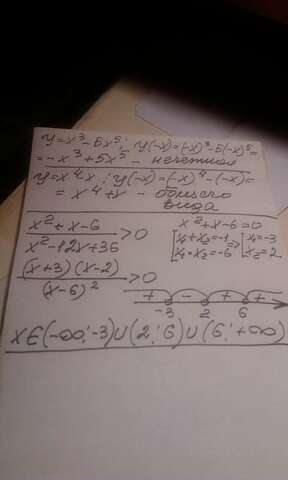 y=x³-5x⁵; y(-x)=(-x)³-5(-x)⁵=
=-x³+5x⁵ - нечетная
y=x⁴x; y(-x)=(-x)⁴-(-x)=
=x⁴+x - общего
вида
x²+x-6 / x²-12x+36 >0
x²+x-6=0
[x₁+x₂=-1 => [x₁=-3
[x₁*x₂=-6 [x₂=2
(x+3)(x-2) / (x-6)² >0
+ - + +
-3 2 6
x∈(-∞;-3)∪(2;6)∪(6;+∞)